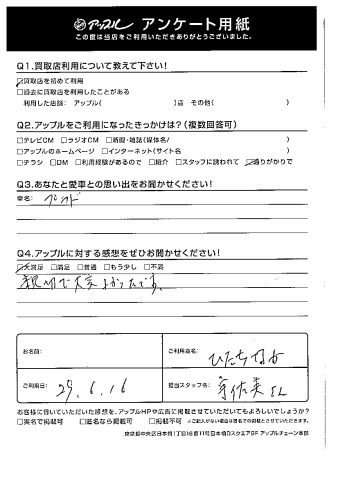 アップル アンケート用紙
この度は当店をご利用いただきありがとうございました。
Q1.買取店利用について教えて下さい!
☑買取店を初めて利用
□過去に買取店を利用したことがある
利用した店舗： アップル( )店 その他( )
Q2.アップルをご利用になったきっかけは?(複数回答可)
□テレビCM □ラジオCM □新聞・雑誌(媒体名/ )
□アップルのホームページ □インターネット(サイト名 )
□チラシ □DM □利用経験があるので □紹介 □スタッフに誘われて ☑通りがかりで
Q3.あなたと愛車との思い出をお聞かせください!
車名:
Q4.アップルに対する感想をぜひお聞かせください!
☑大満足 □満足 □普通 □もう少し □不満
親切で大変よかったです。
お名前:
ご利用店名: ひたちなか
ご利用日: 29.6.16
担当スタッフ名:
お客様に書いていただいた感想を、アップルHPや広告に掲載させていただいてもよろしいでしょうか?
□実名で掲載可 □匿名なら掲載可 □掲載不可 ※ご記入がない場合は匿名での掲載とさせていただきます。
東京都中央区日本橋1丁目16番11号日本橋Dスクエア8F アップルチェーン本部